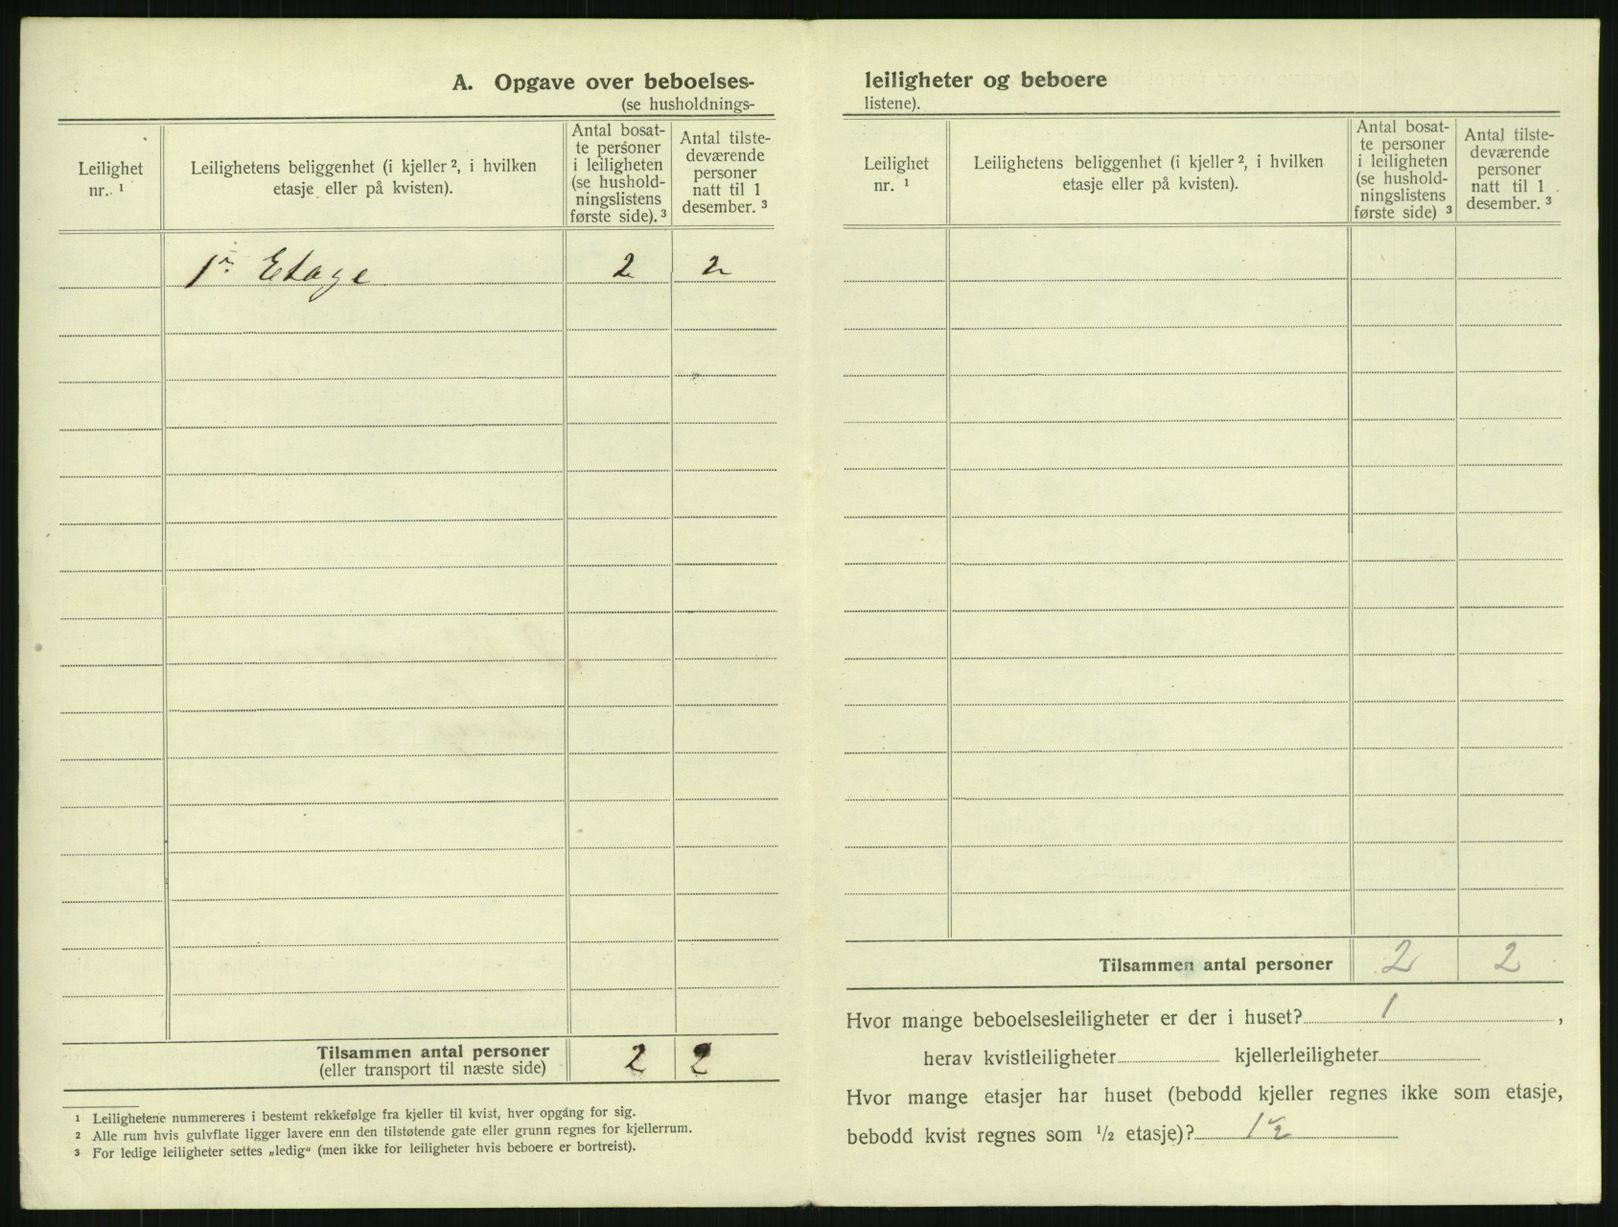 A. Opgave over beboelses-
(se husholdnings-
Leilighet
nr. ¹
Leilighetens beliggenhet (i kjeller ², i hvilken
etasje eller på kvisten).
Antal bosat-
te personer
i leiligheten
(se hushold-
ningslistens
første side). ³
Antal tilste-
deværende
personer
natt til 1
desember. ³
1ᵉ Etage 2 2
Tilsammen antal personer 2 2
(eller transport til næste side)
¹ Leilighetene nummereres i bestemt rekkefølge fra kjeller til kvist, hver opgang for sig.
² Alle rum hvis gulvflate ligger lavere enn den tilstøtende gate eller grunn regnes for kjellerrum.
³ For ledige leiligheter settes „ledig“ (men ikke for leiligheter hvis beboere er bortreist).
leiligheter og beboere
listene).
Leilighet
nr. ¹
Leilighetens beliggenhet (i kjeller ², i hvilken
etasje eller på kvisten).
Antal bosat-
te personer
i leiligheten
(se hushold-
ningslistens
første side) ³
Antal tilste-
deværende
personer
natt til 1
desember. ³
Tilsammen antal personer 2 2
Hvor mange beboelsesleiligheter er der i huset? 1 ,
herav kvistleiligheter kjellerleiligheter
Hvor mange etasjer har huset (bebodd kjeller regnes ikke som etasje,
bebodd kvist regnes som ½ etasje)? 1½